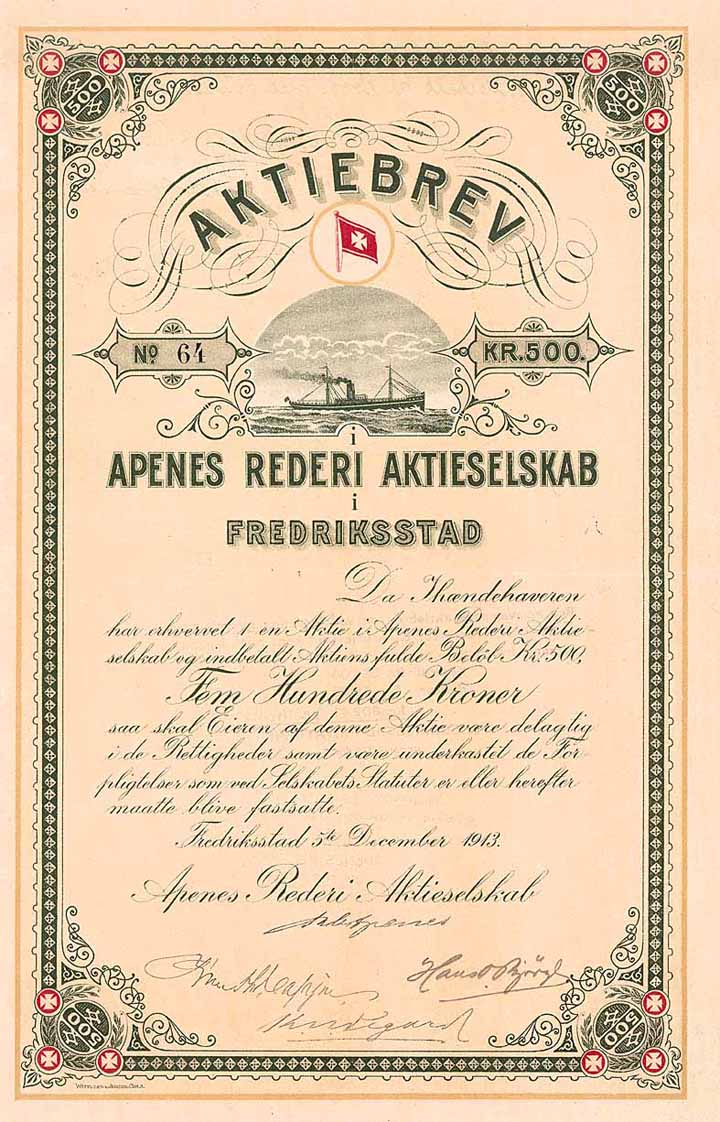 500
500
AKTIEBREV
No 64
KR.500.
i
APENES REDERI AKTIESELSKAB
i
FREDRIKSSTAD
Da Ihændehaveren
har erhvervet 1 en Aktie i Apenes Rederi Aktie-
selskab og indbetalt Aktiens fulde Beløb Kr. 500,
Fem Hundrede Kroner
saa skal Eieren af denne Aktie være delagtig
i de Rettigheder samt være underkastet de For-
pligtelser som ved Selskabets Statuter er eller herefter
maatte blive fastsatte.
Fredriksstad 5te December 1913.
Apenes Rederi Aktieselskab
Apenes
Hans
500
500